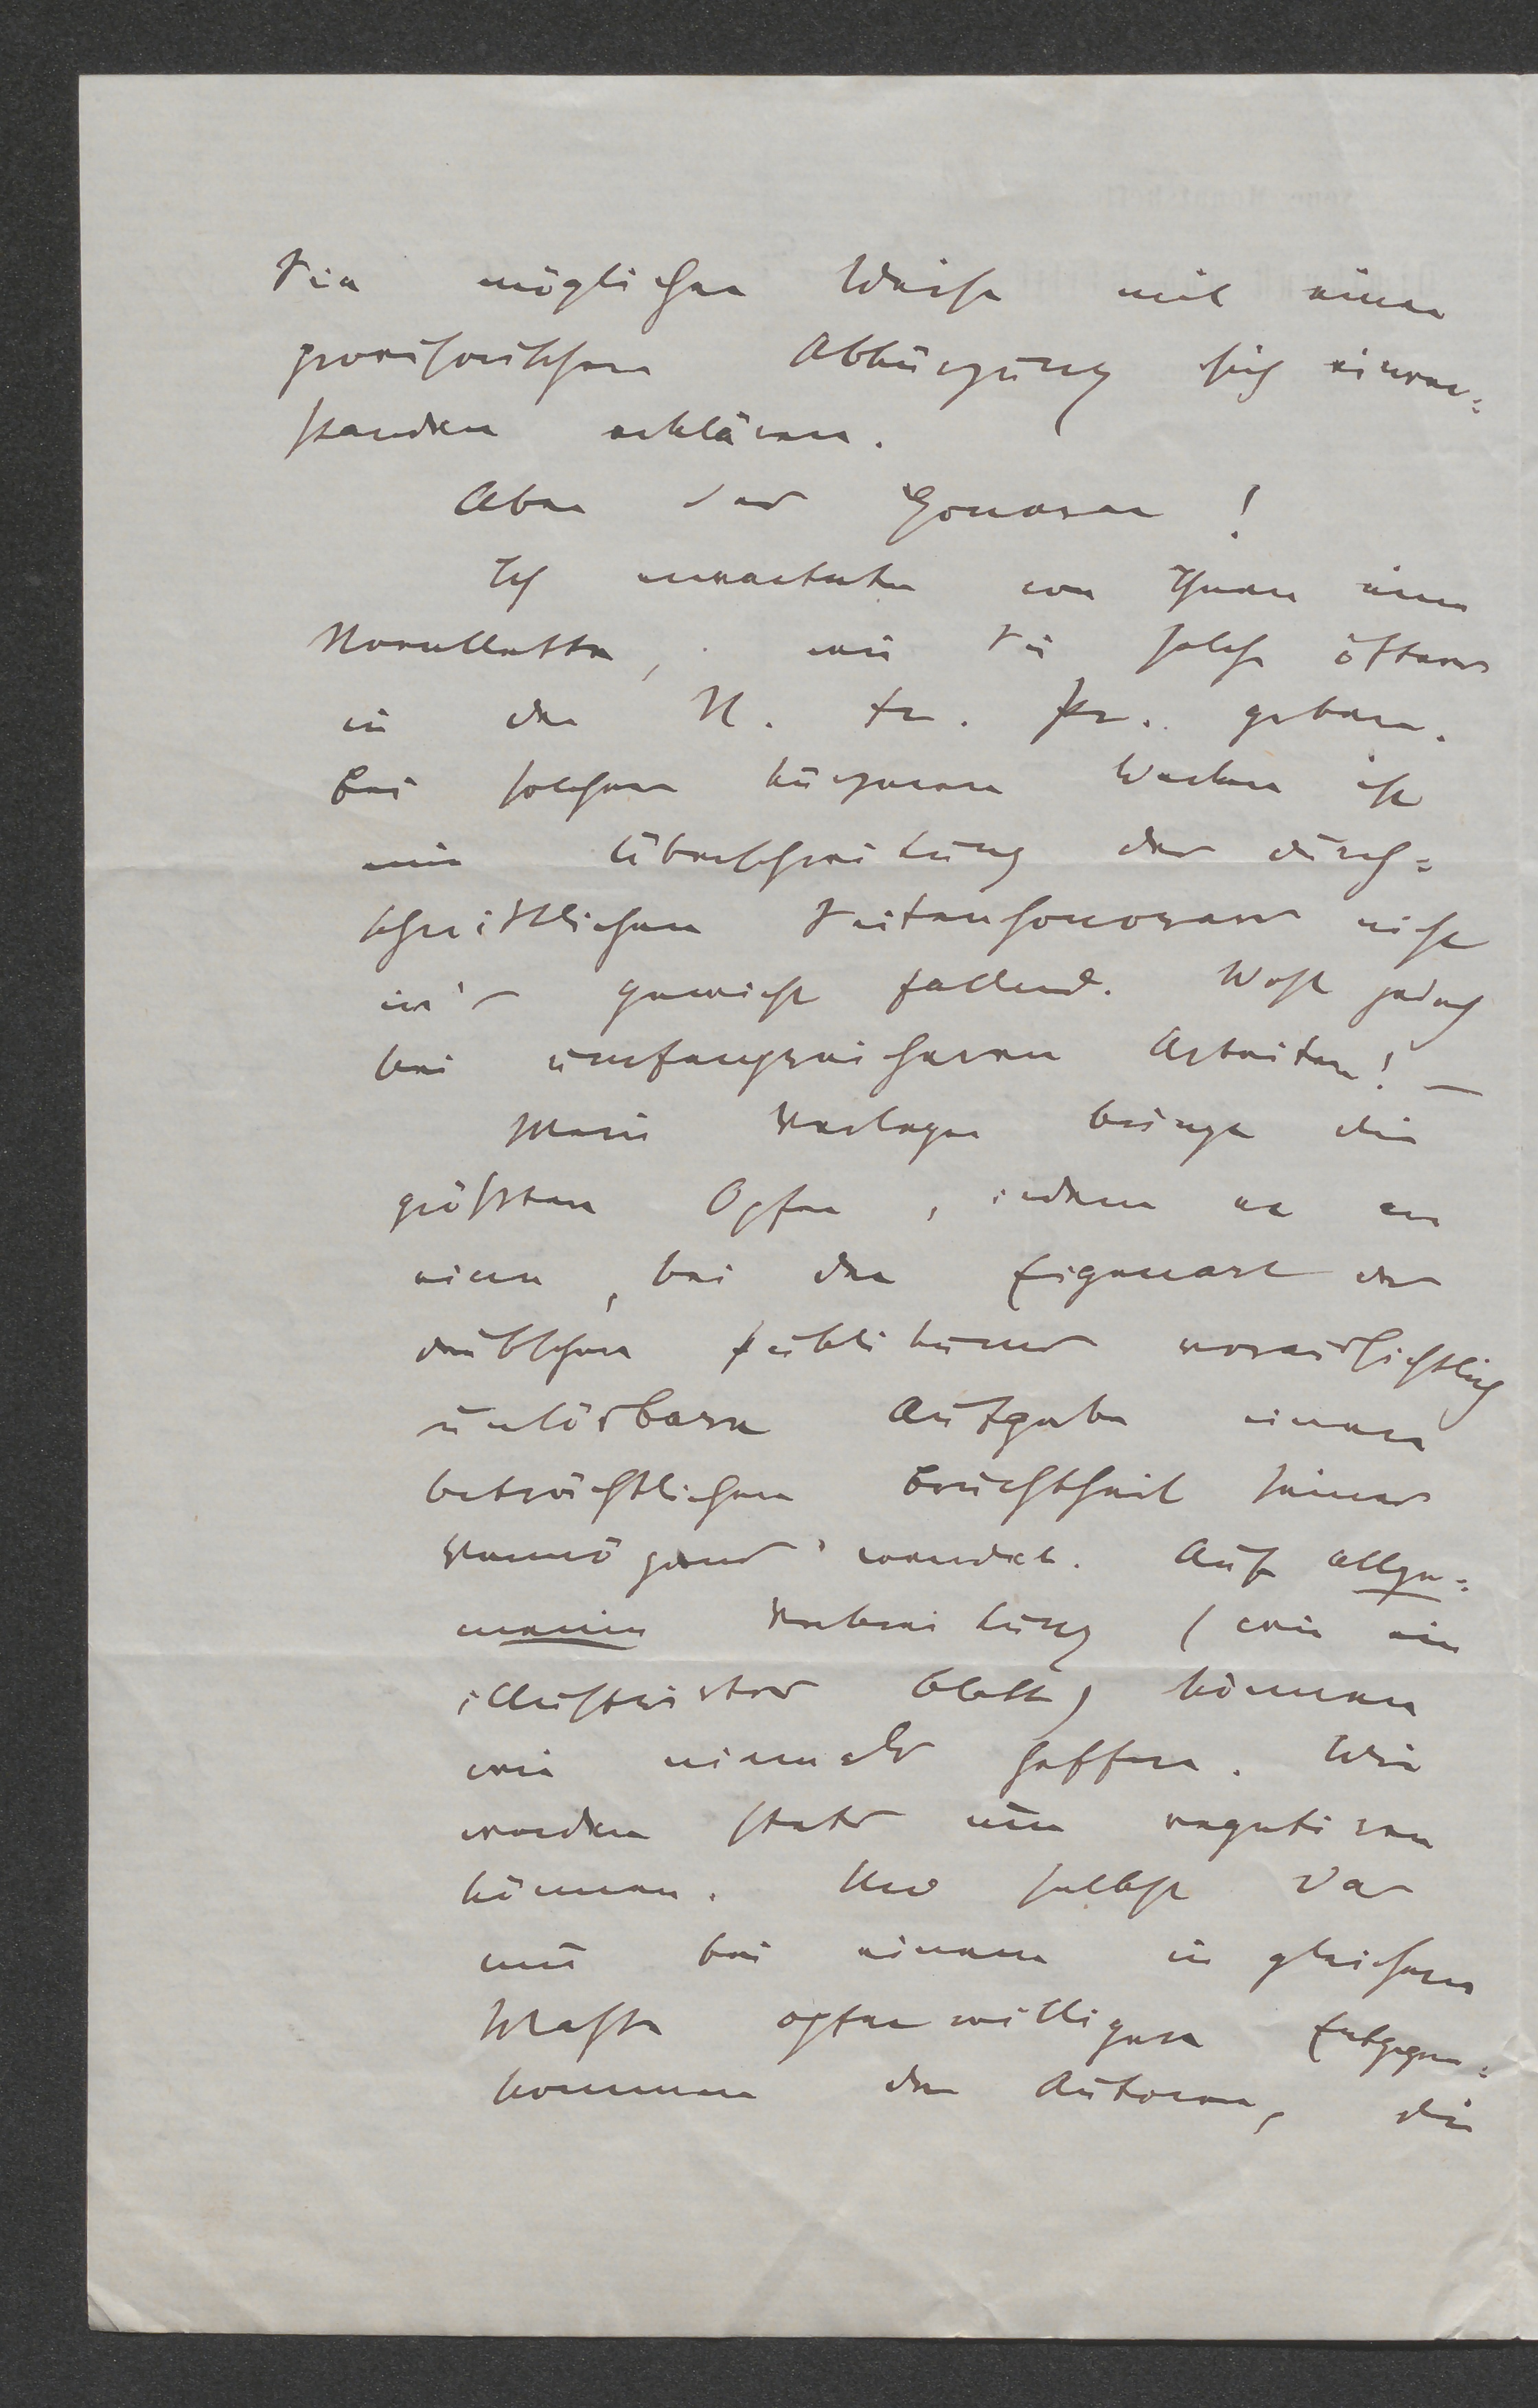 Sie möglicher Weise mit einer
provisorischen Abkürzung sich einver=
standen erklären.
Aber das Honorar!
Ich erwartete von Ihnen eine
Novellette, wie Sie solche öfters
in der N. Fr. Pr. geben.
Bei solchen kürzeren Werken ist
eine Überschreitung des durch=
schnittlichen Seitenhonorares nicht
in's Gewicht fallend. Wohl jedoch
bei umfangreicheren Arbeiten! –
Mein Verleger bringt die
größten Opfer, indem er an
eine, bei der Eigenart des
deutschen Publikums voraussichtlich
unlösbare Aufgabe einen
beträchtlichen Bruchtheil seines
Vermögens wendet. Auf allge=
meine Verbreitung (wie ein
illustriertes Blatt) können
wir niemals hoffen. Wir
werden stets nur vegetiren
können. Und selbst das
nur bei einem in gleichem
Maße opferwilligen Entgegen=
kommen der Autoren, die